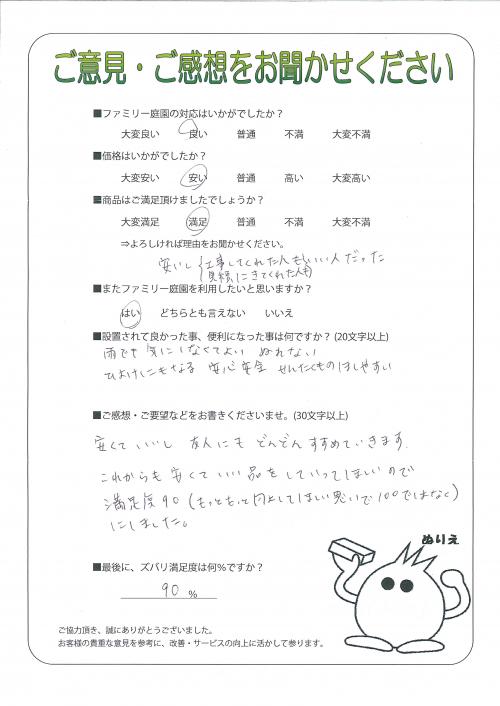 ご意見・ご感想をお聞かせください
■ファミリー庭園の対応はいかがでしたか？
大変良い 良い 普通 不満 大変不満
■価格はいかがでしたか？
大変安い 安い 普通 高い 大変高い
■商品はご満足頂けましたでしょうか？
大変満足 満足 普通 不満 大変不満
⇒よろしければ理由をお聞かせください。
安いし 工事してくれた人もいい人だった
(見積にきてくれた人も)
■またファミリー庭園を利用したいと思いますか？
はい どちらとも言えない いいえ
■設置されて良かった事、便利になった事は何ですか？(20文字以上)
雨でも気にしなくてよい ぬれない
ひよけにもなる 安心安全 せんたくものほしやすい
■ご感想・ご要望などをお書きくださいませ。(30文字以上)
安くていいし 友人にも どんどんすすめていきます。
これからも安くていい品をしていってほしいので
満足度90(もっともっと向上してほしい思いで100ではなく)
にしました。
ぬりえ
■最後に、ズバリ満足度は何%ですか？
90 %
ご協力頂き、誠にありがとうございました。
お客様の貴重な意見を参考に、改善・サービスの向上に活かして参ります。